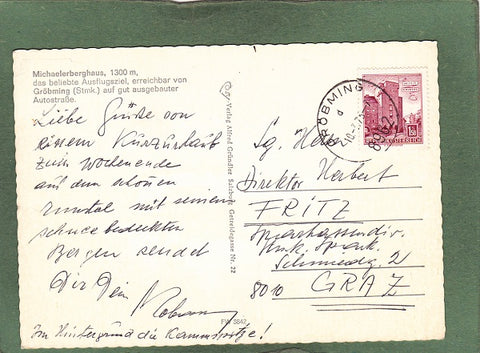 Michaelerberghaus, 1300 m,
das beliebte Ausflugsziel, erreichbar von
Gröbming (Stmk.) auf gut ausgebauter
Autostraße.
Liebe Grüße von
einem Kurzurlaub
zum Wochenende
aus dem schönen
Ennstal mit seinen
schneebedeckten
Bergen sendet
Dir Dein
Im Hintergrund die Kammspitze!
Verlag Alfred Gründler Salzburg, Getreidegasse Nr. 22
GRÖBMING
8962
ÖSTERREICH
Sg. Herrn
Direktor Herbert
FRITZ
Schmiedg. 2
8010 GRAZ